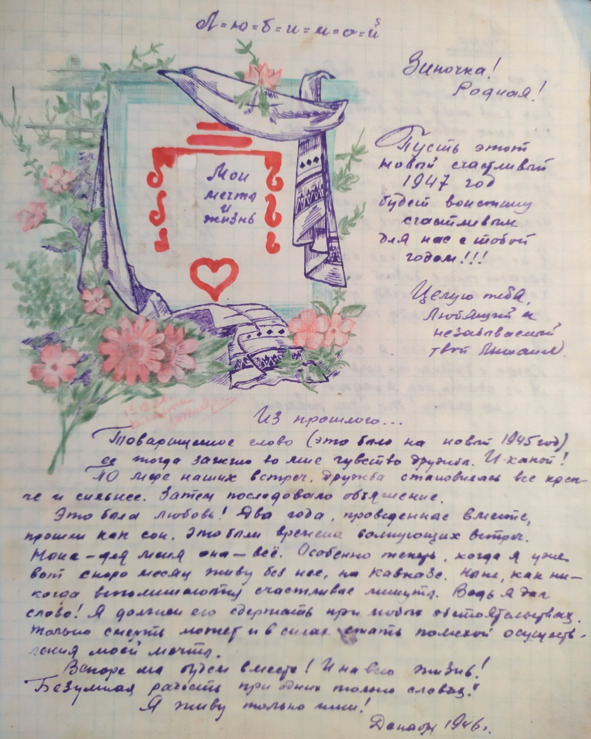 Л=ю=б=и=м=о=й
Зиночка!
Родная!
Мои
мечта
и
жизнь
Пусть этот
новый счастливый
1947 год
будет воистину
счастливым
для нас с тобой
годом!!!
Целую тебя,
Любящий и
незабываемой
твой
Из прошлого...
Товарищеское слово (это было на новый 1945 год)
ее тогда зажгло во мне чувство дружбы. И какой!
По мере наших встреч, дружба становилась все креп-
че и сильнее. Затем последовало объяснение.
Это была любовь! Два года, проведенные вместе,
прошли как сон. Это были времена волнующих встреч.
для меня она – всё. Особенно теперь, когда я уже
вот скоро месяц живу без нее, на Кавказе. как ни-
когда вспоминаются счастливые минуты. Ведь я дал
слово! Я должен его сдержать при любых обстоятельствах.
Только смерть может и в силах стать помехой осуществ-
ления моей мечты.
Вскоре мы будем вместе! И на всю жизнь!
Безумная радость при одних только словах!
Я живу только ими!
Декабрь 1946 г.